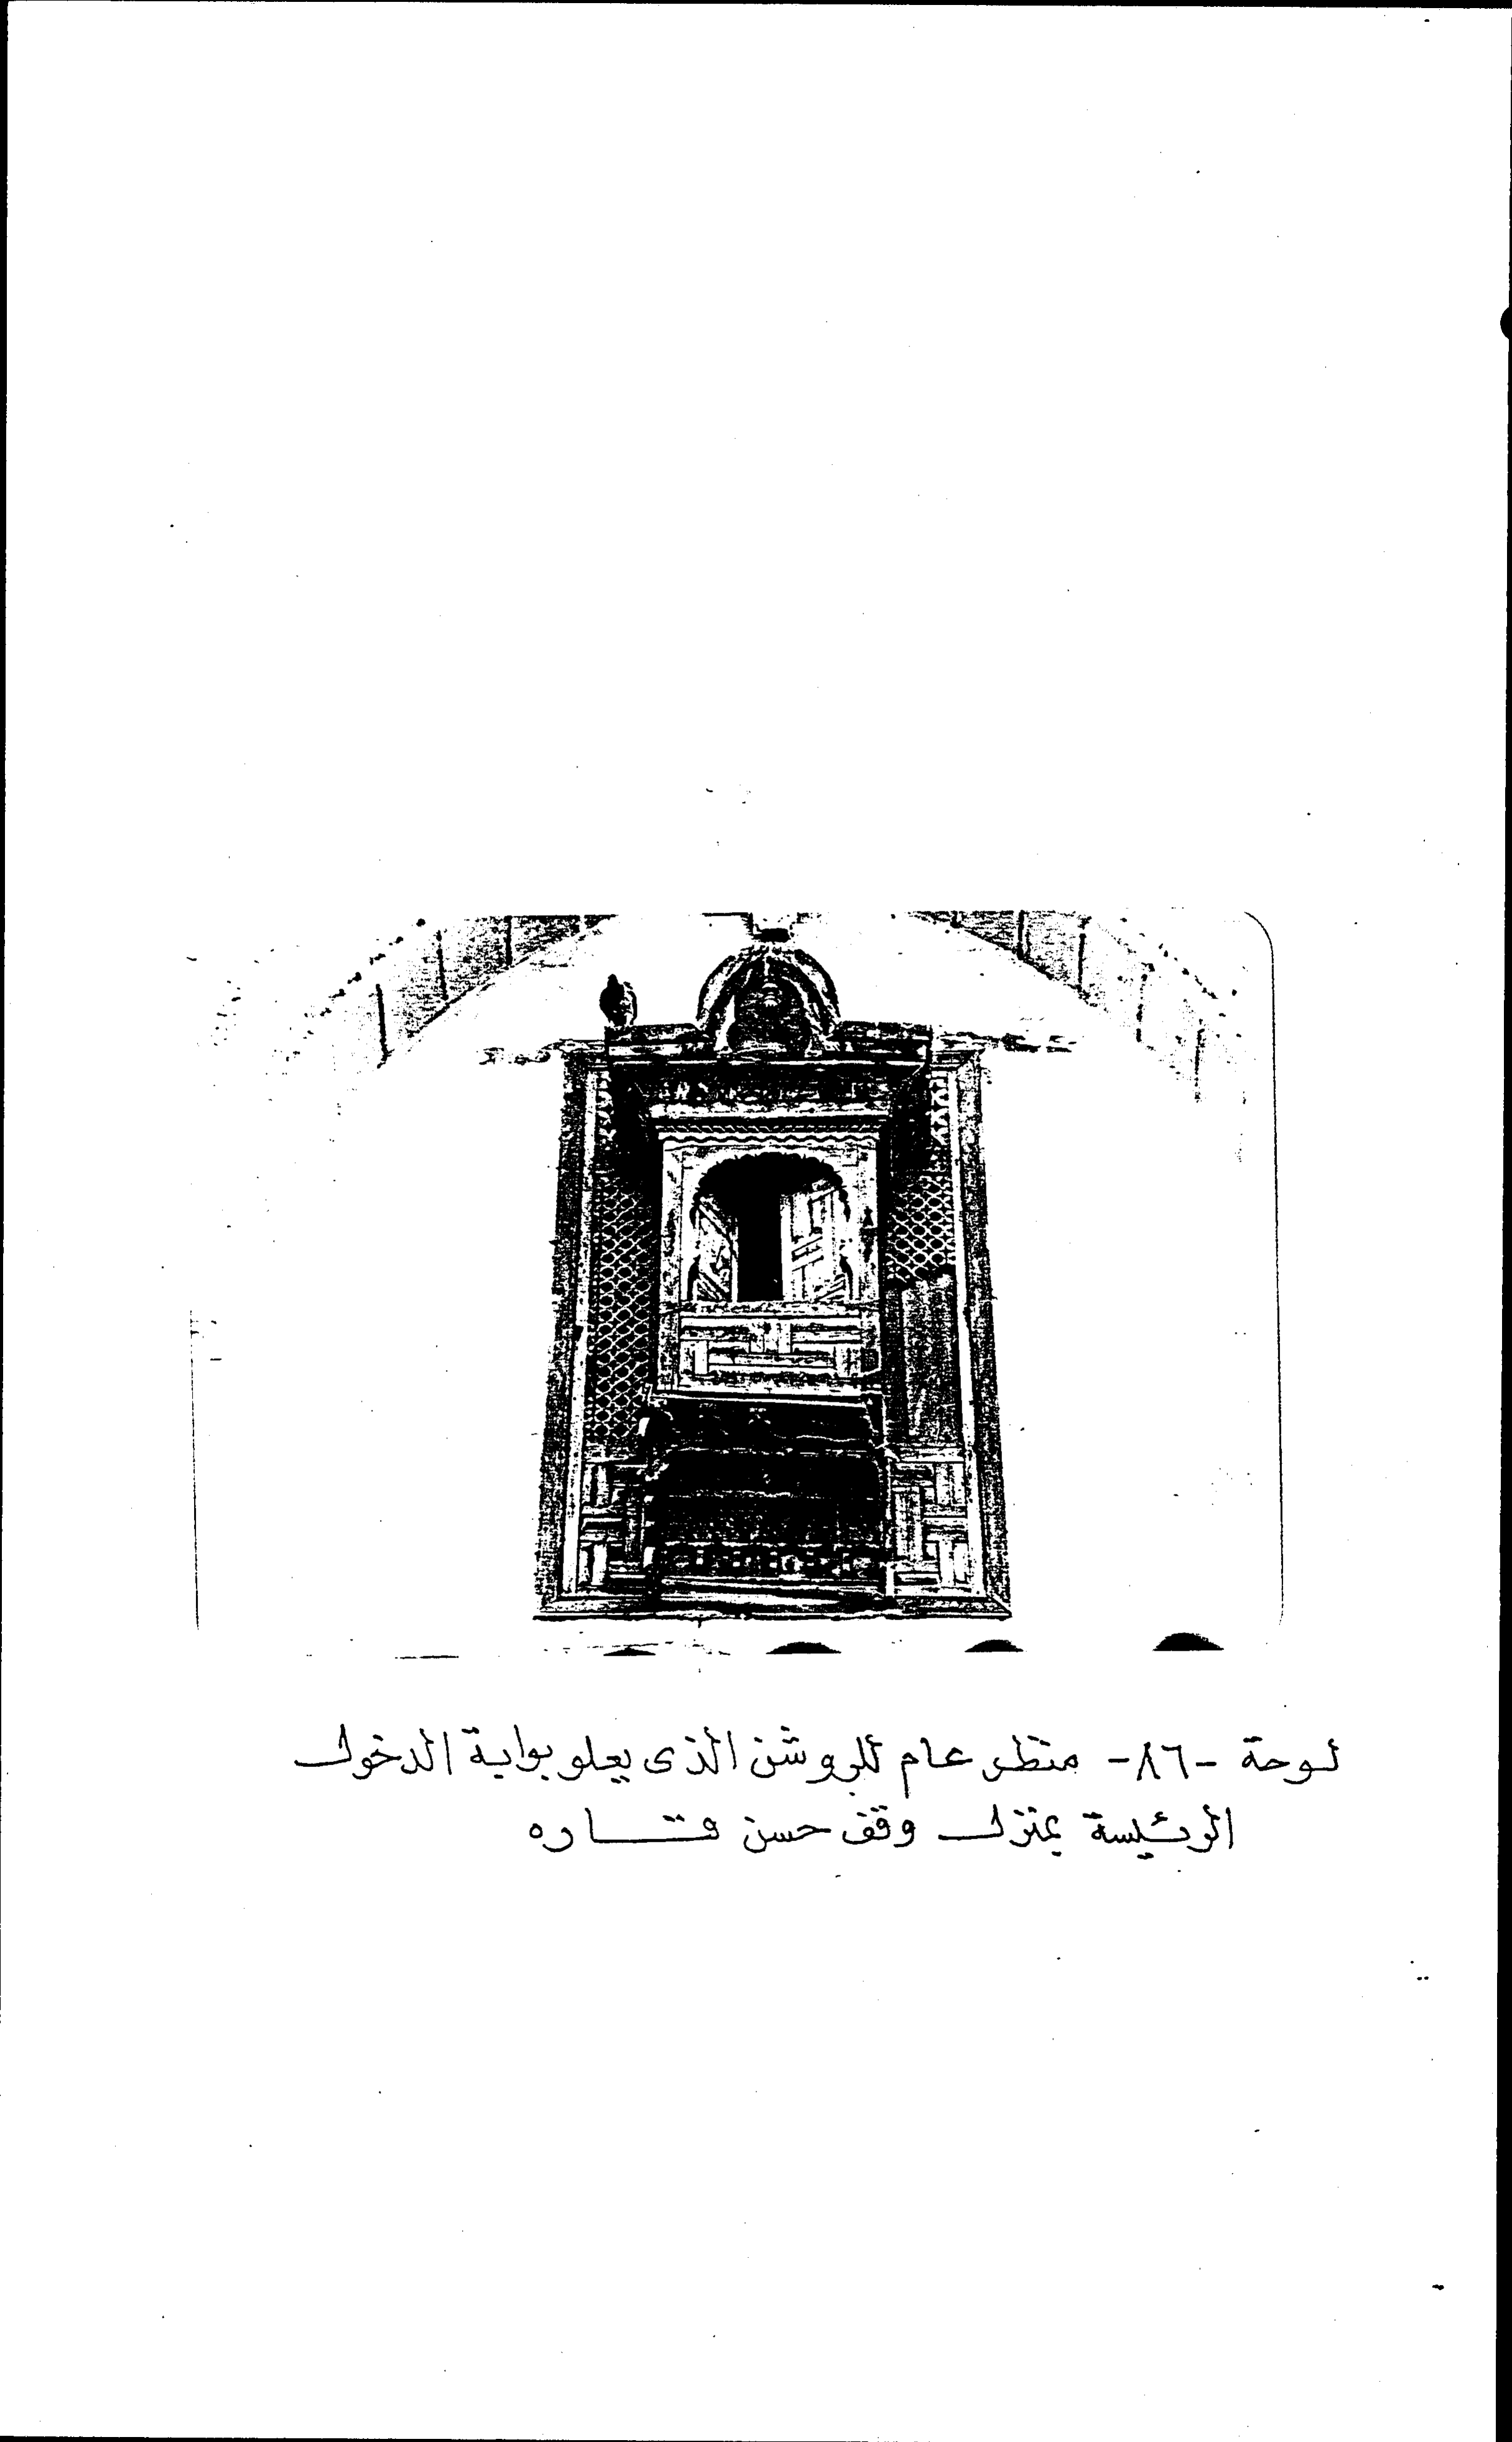 لوحة -٨٦- منظر عام للروشن الذى يعلو بوابة الدخول
الرئيسة بمنزل وقف حسن